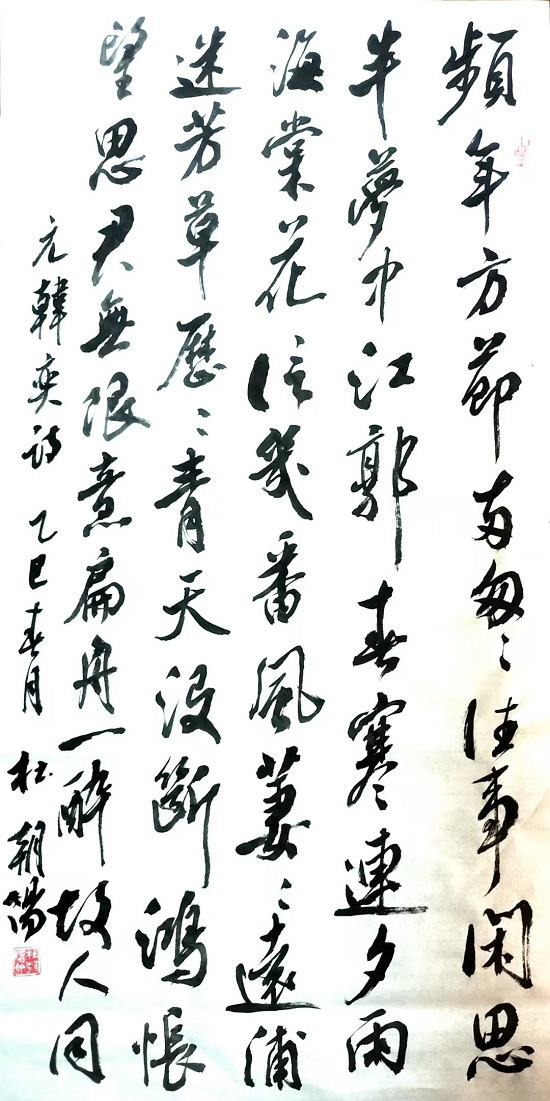 頻年方節匆々往事闲思
半夢中江郭春寒連夕雨
海棠花信幾番風萋々遠浦
迷芳草歷々青天没斷鴻悵
望思君無限意扁舟一醉故人同
元韓奕詩 乙巳春月 杜朝陽